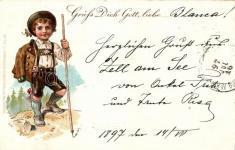 Grüß Dich Gott, liebe Blanca!
Herzlichen Gruß aus
Zell am See
von Onkel
und Tante Resa
1897 14/VII